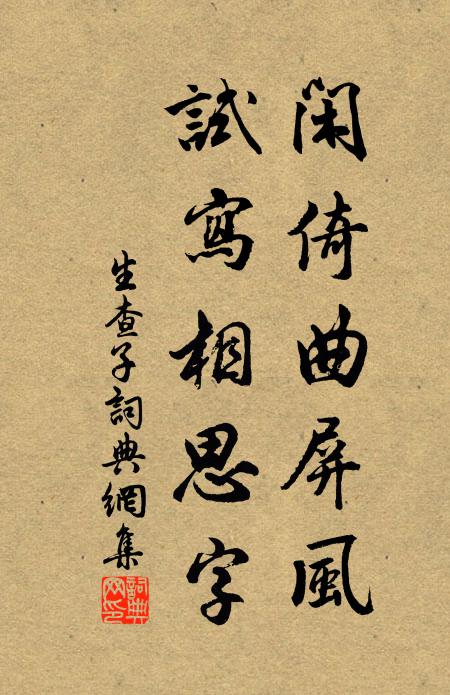 閑倚曲屏風
試寫相思字
生查子詞典網集
詞典网印